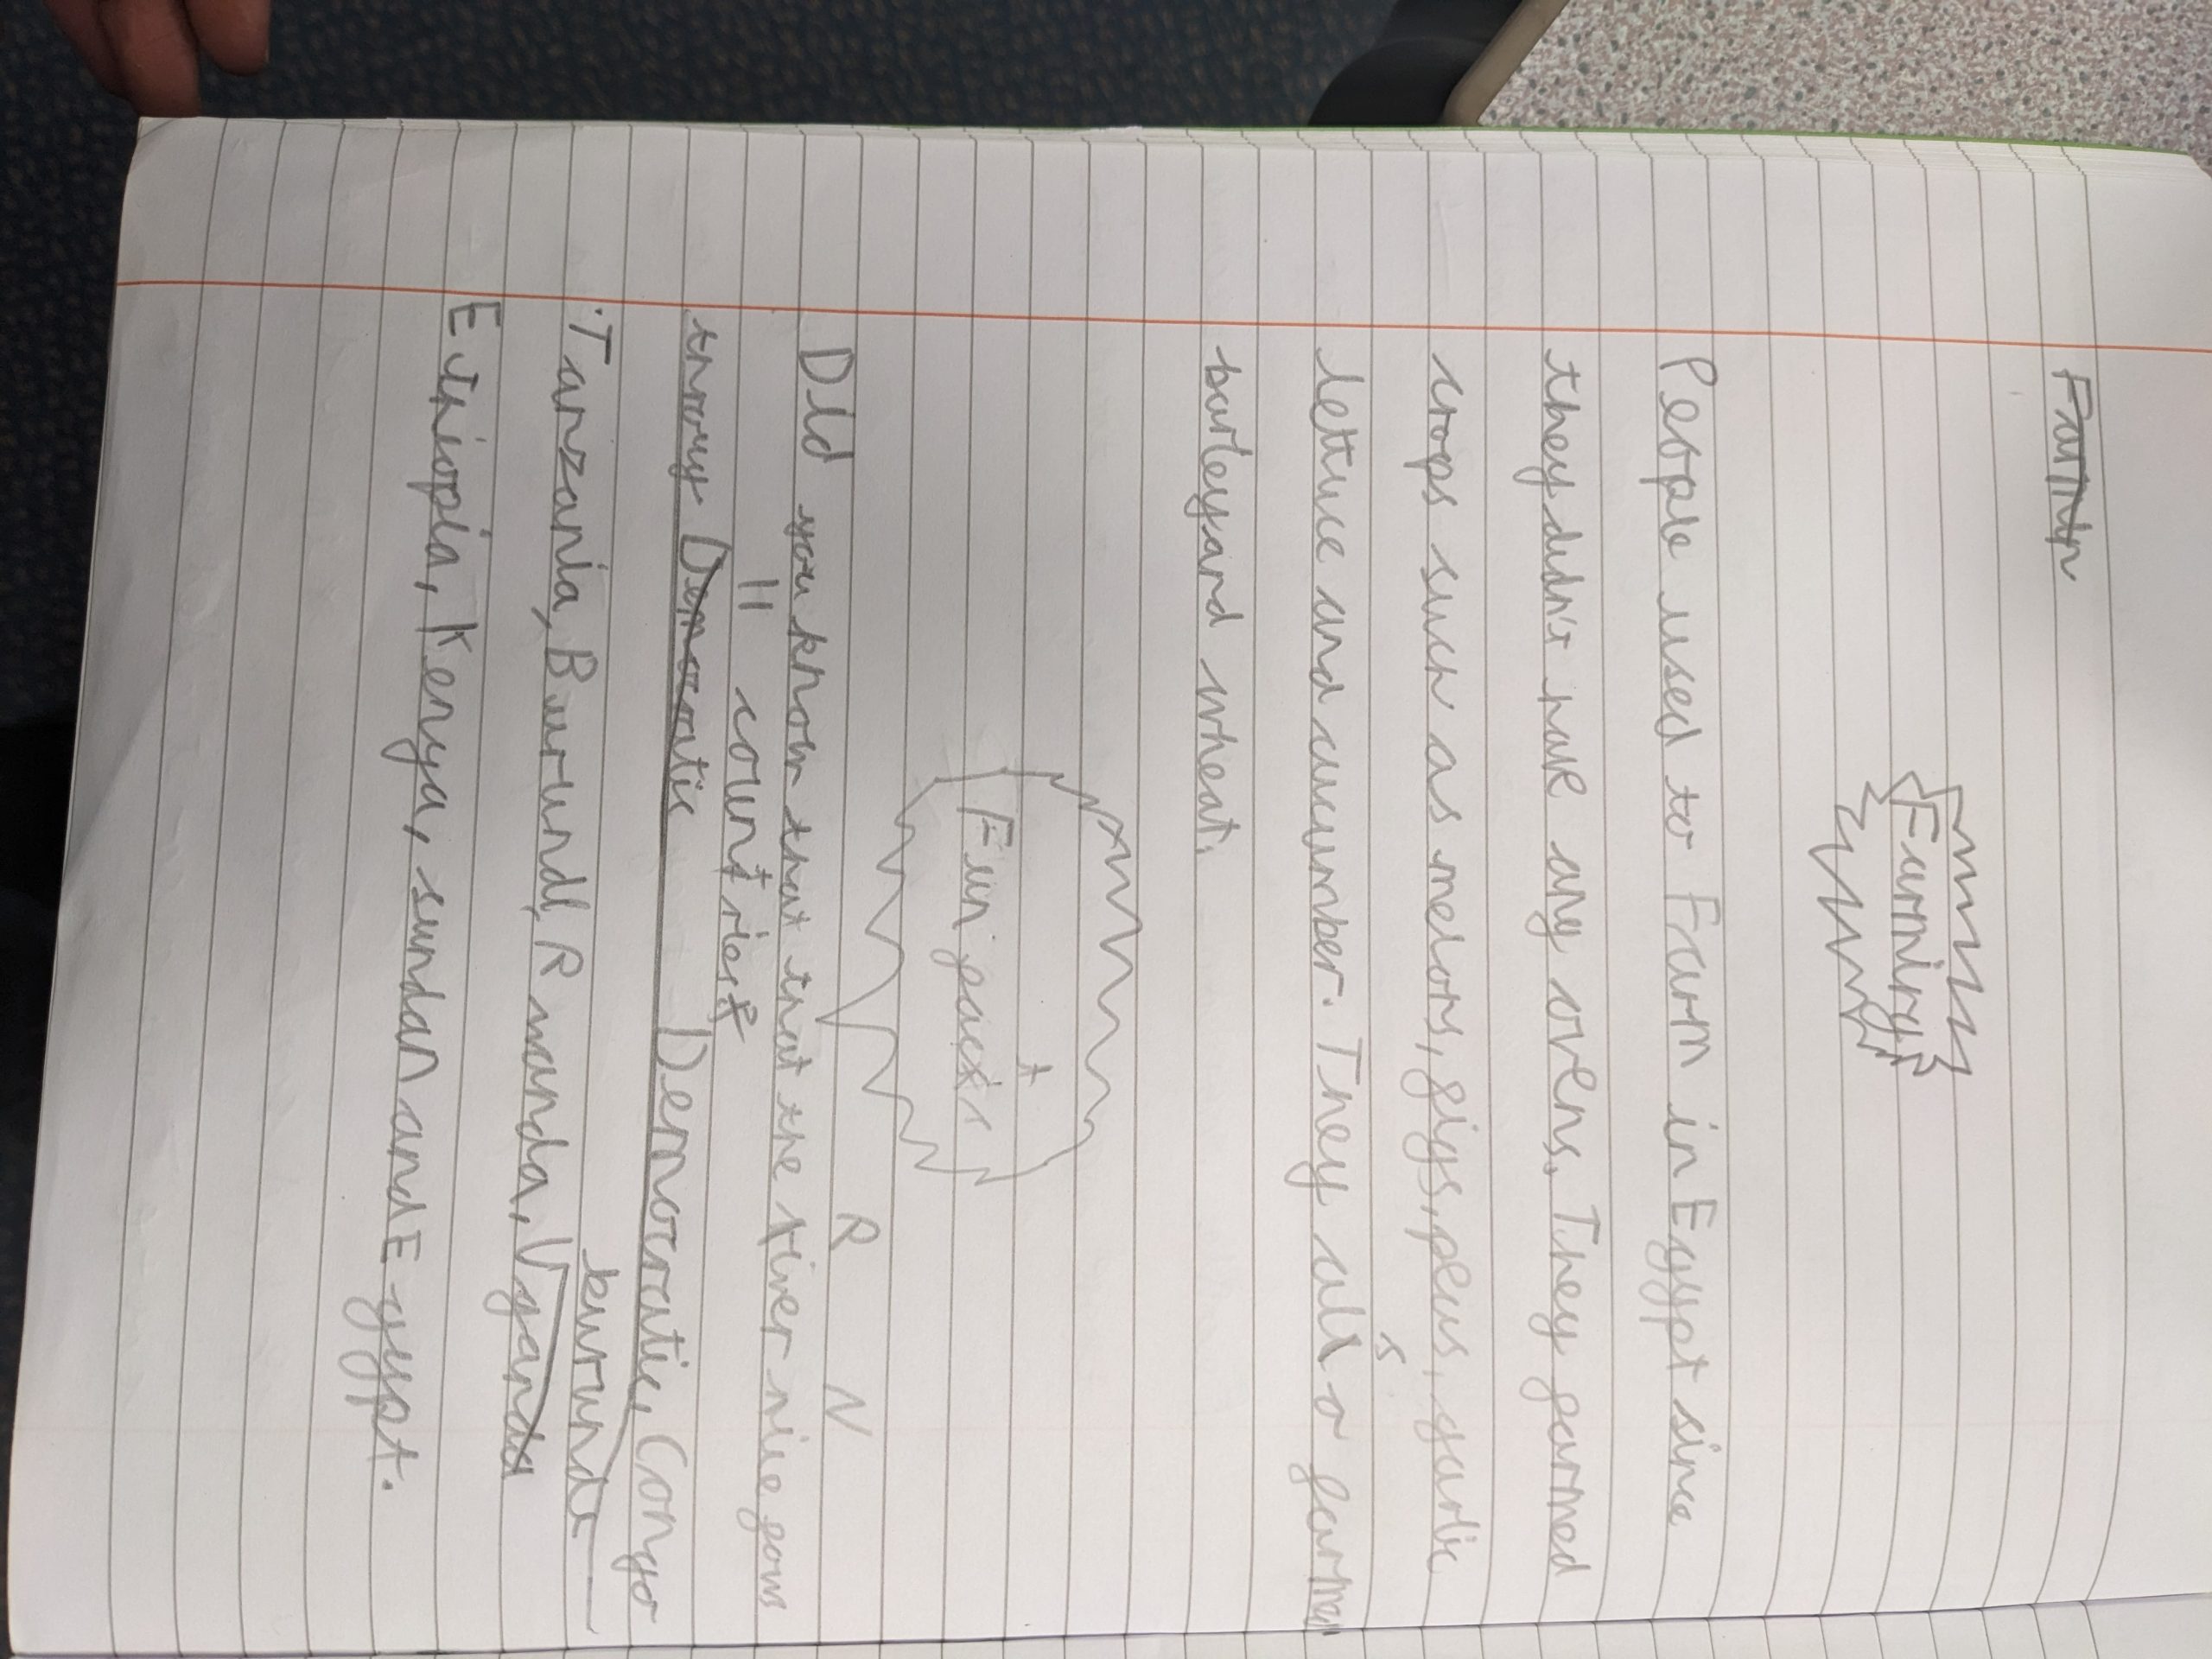 Farming
People used to Farm in Egypt since
they didn't have any ovens. They farmed
crops such as melons, figs, peas, garlic
lettuce and cucumber. They als o farmed
barley and wheat.
Fun facts
R N
Did you know that that the river nile gows
11 countries
throug Democratic Democratic, Congo
burundi
Tanzania, Burundi, Rwanda, Uganda
Ethiopia, Kenya, sundan and Egypt.